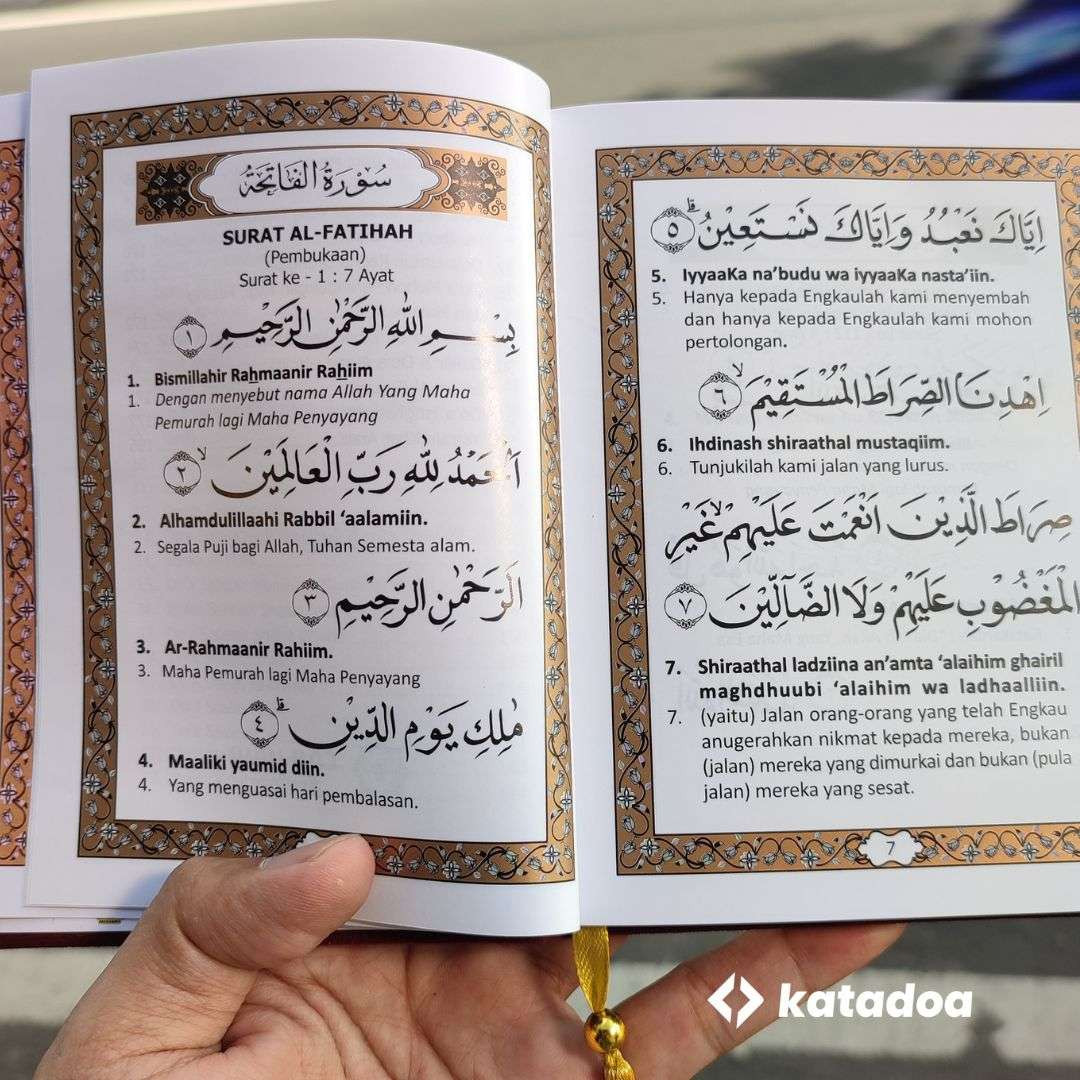 سُوْرَةُ الْفَاتِحَةُ
SURAT AL-FATIHAH
(Pembukaan)
Surat ke - 1 : 7 Ayat
بِسْمِ اللهِ الرَّحْمٰنِ الرَّحِيْمِ ١
1. Bismillahir Rahmaanir Rahiim
1. Dengan menyebut nama Allah Yang Maha
Pemurah lagi Maha Penyayang
اَلْحَمْدُ لِلّٰهِ رَبِّ الْعَالَمِيْنَ ۙ ٢
2. Alhamdulillaahi Rabbil ‘aalamiin.
2. Segala Puji bagi Allah, Tuhan Semesta alam.
الرَّحْمٰنِ الرَّحِيْمِ ٣
3. Ar-Rahmaanir Rahiim.
3. Maha Pemurah lagi Maha Penyayang
مٰلِكِ يَوْمِ الدِّيْنِ ۗ ٤
4. Maaliki yaumid diin.
4. Yang menguasai hari pembalasan.
اِيَّاكَ نَعْبُدُ وَاِيَّاكَ نَسْتَعِيْنُ ۗ ٥
5. IyyaaKa na’budu wa iyyaaKa nasta’iin.
5. Hanya kepada Engkaulah kami menyembah
dan hanya kepada Engkaulah kami mohon
pertolongan.
اِهْدِنَا الصِّرَاطَ الْمُسْتَقِيْمَ ۙ ٦
6. Ihdinash shiraathal mustaqiim.
6. Tunjukilah kami jalan yang lurus.
صِرَاطَ الَّذِيْنَ اَنْعَمْتَ عَلَيْهِمْ ۙ غَيْرِ
الْمَغْضُوْبِ عَلَيْهِمْ وَلَا الضَّآلِّيْنَ ٧
7. Shiraathal ladziina an’amta ‘alaihim ghairil
maghdhuubi ‘alaihim wa ladhaalliin.
7. (yaitu) Jalan orang-orang yang telah Engkau
anugerahkan nikmat kepada mereka, bukan
(jalan) mereka yang dimurkai dan bukan (pula
jalan) mereka yang sesat.
7
katadoa